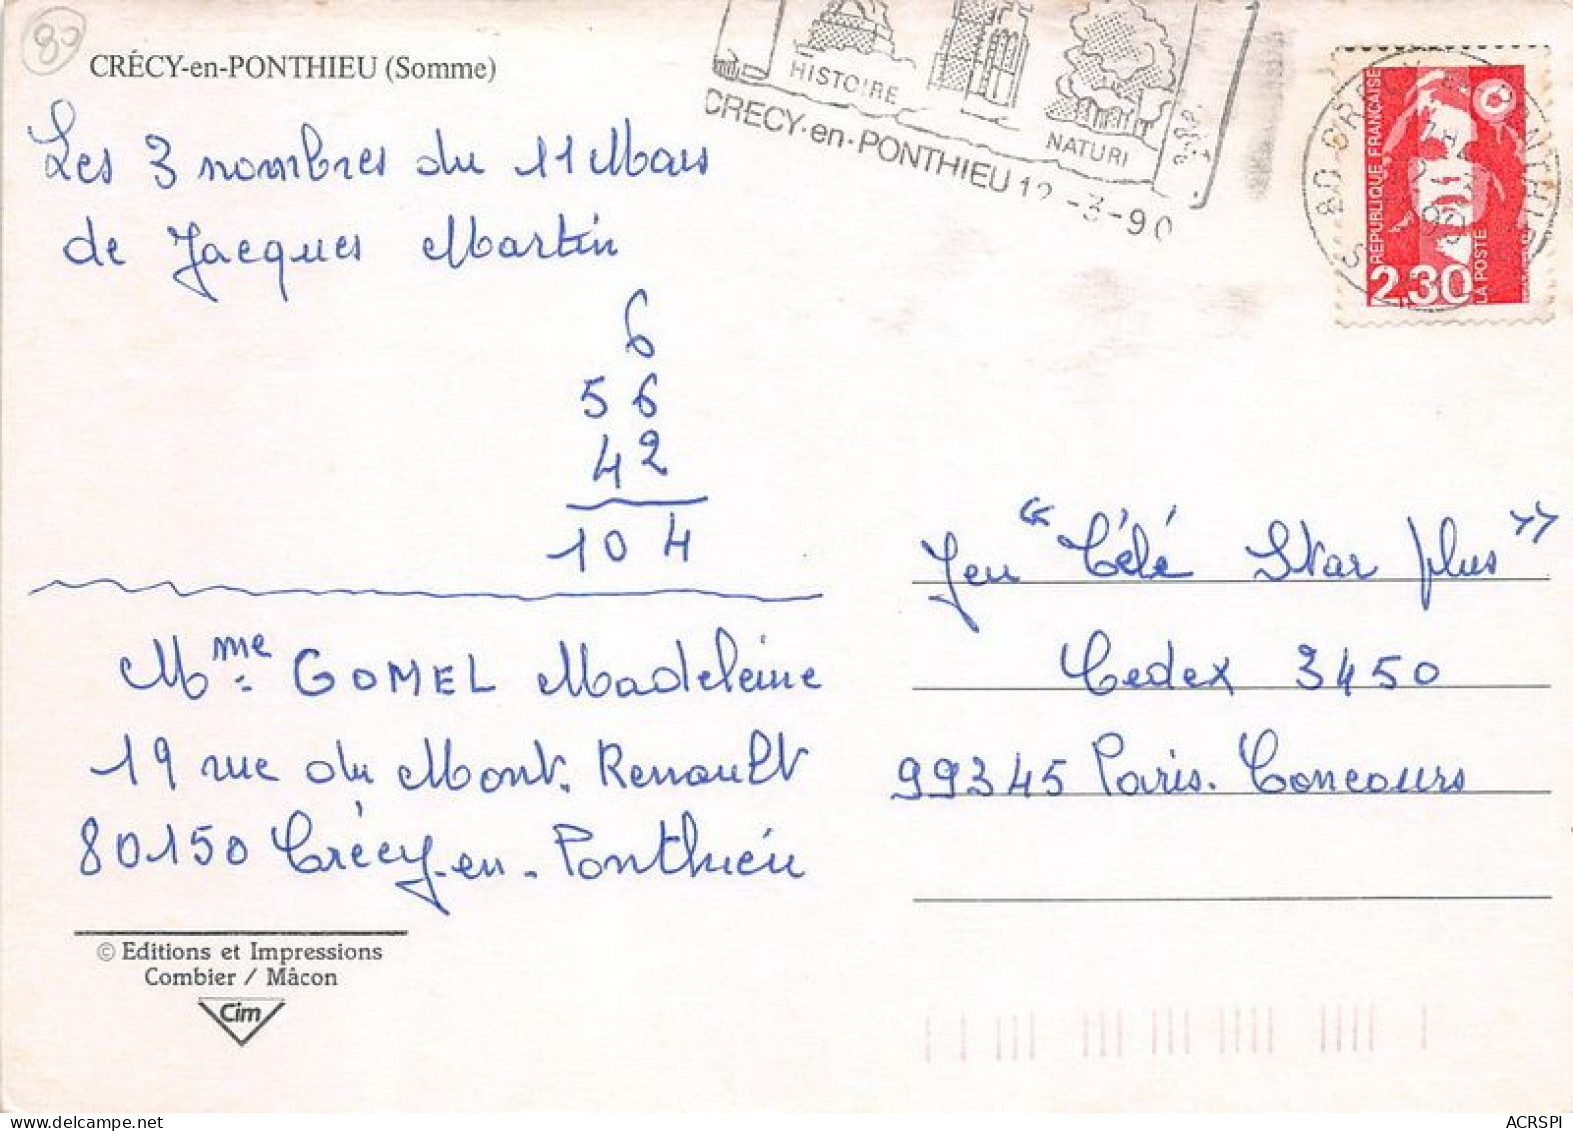 80
CRÉCY-en-PONTHIEU (Somme)
HISTOIRE
NATUR
CRECY-en-PONTHIEU 12 -3-90
RÉPUBLIQUE FRANÇAISE
LA POSTE
2,30
Les 3 nombres du 11 Mars
de Jacques Martin
6
56
42
104
Jeu "Télé Star plus"
Cedex 3450
99345 Paris. Concours
Mme GOMEL Madeleine
19 rue du Mont. Renault
80150 Crécy-en-Ponthieu
© Editions et Impressions
Combier / Mâcon
Cim
ACRSPI